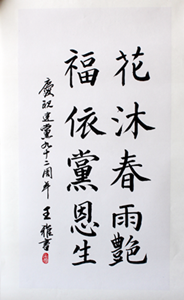 花沐春雨艷
福依黨恩生
慶祝建黨九十二周年
王雅書